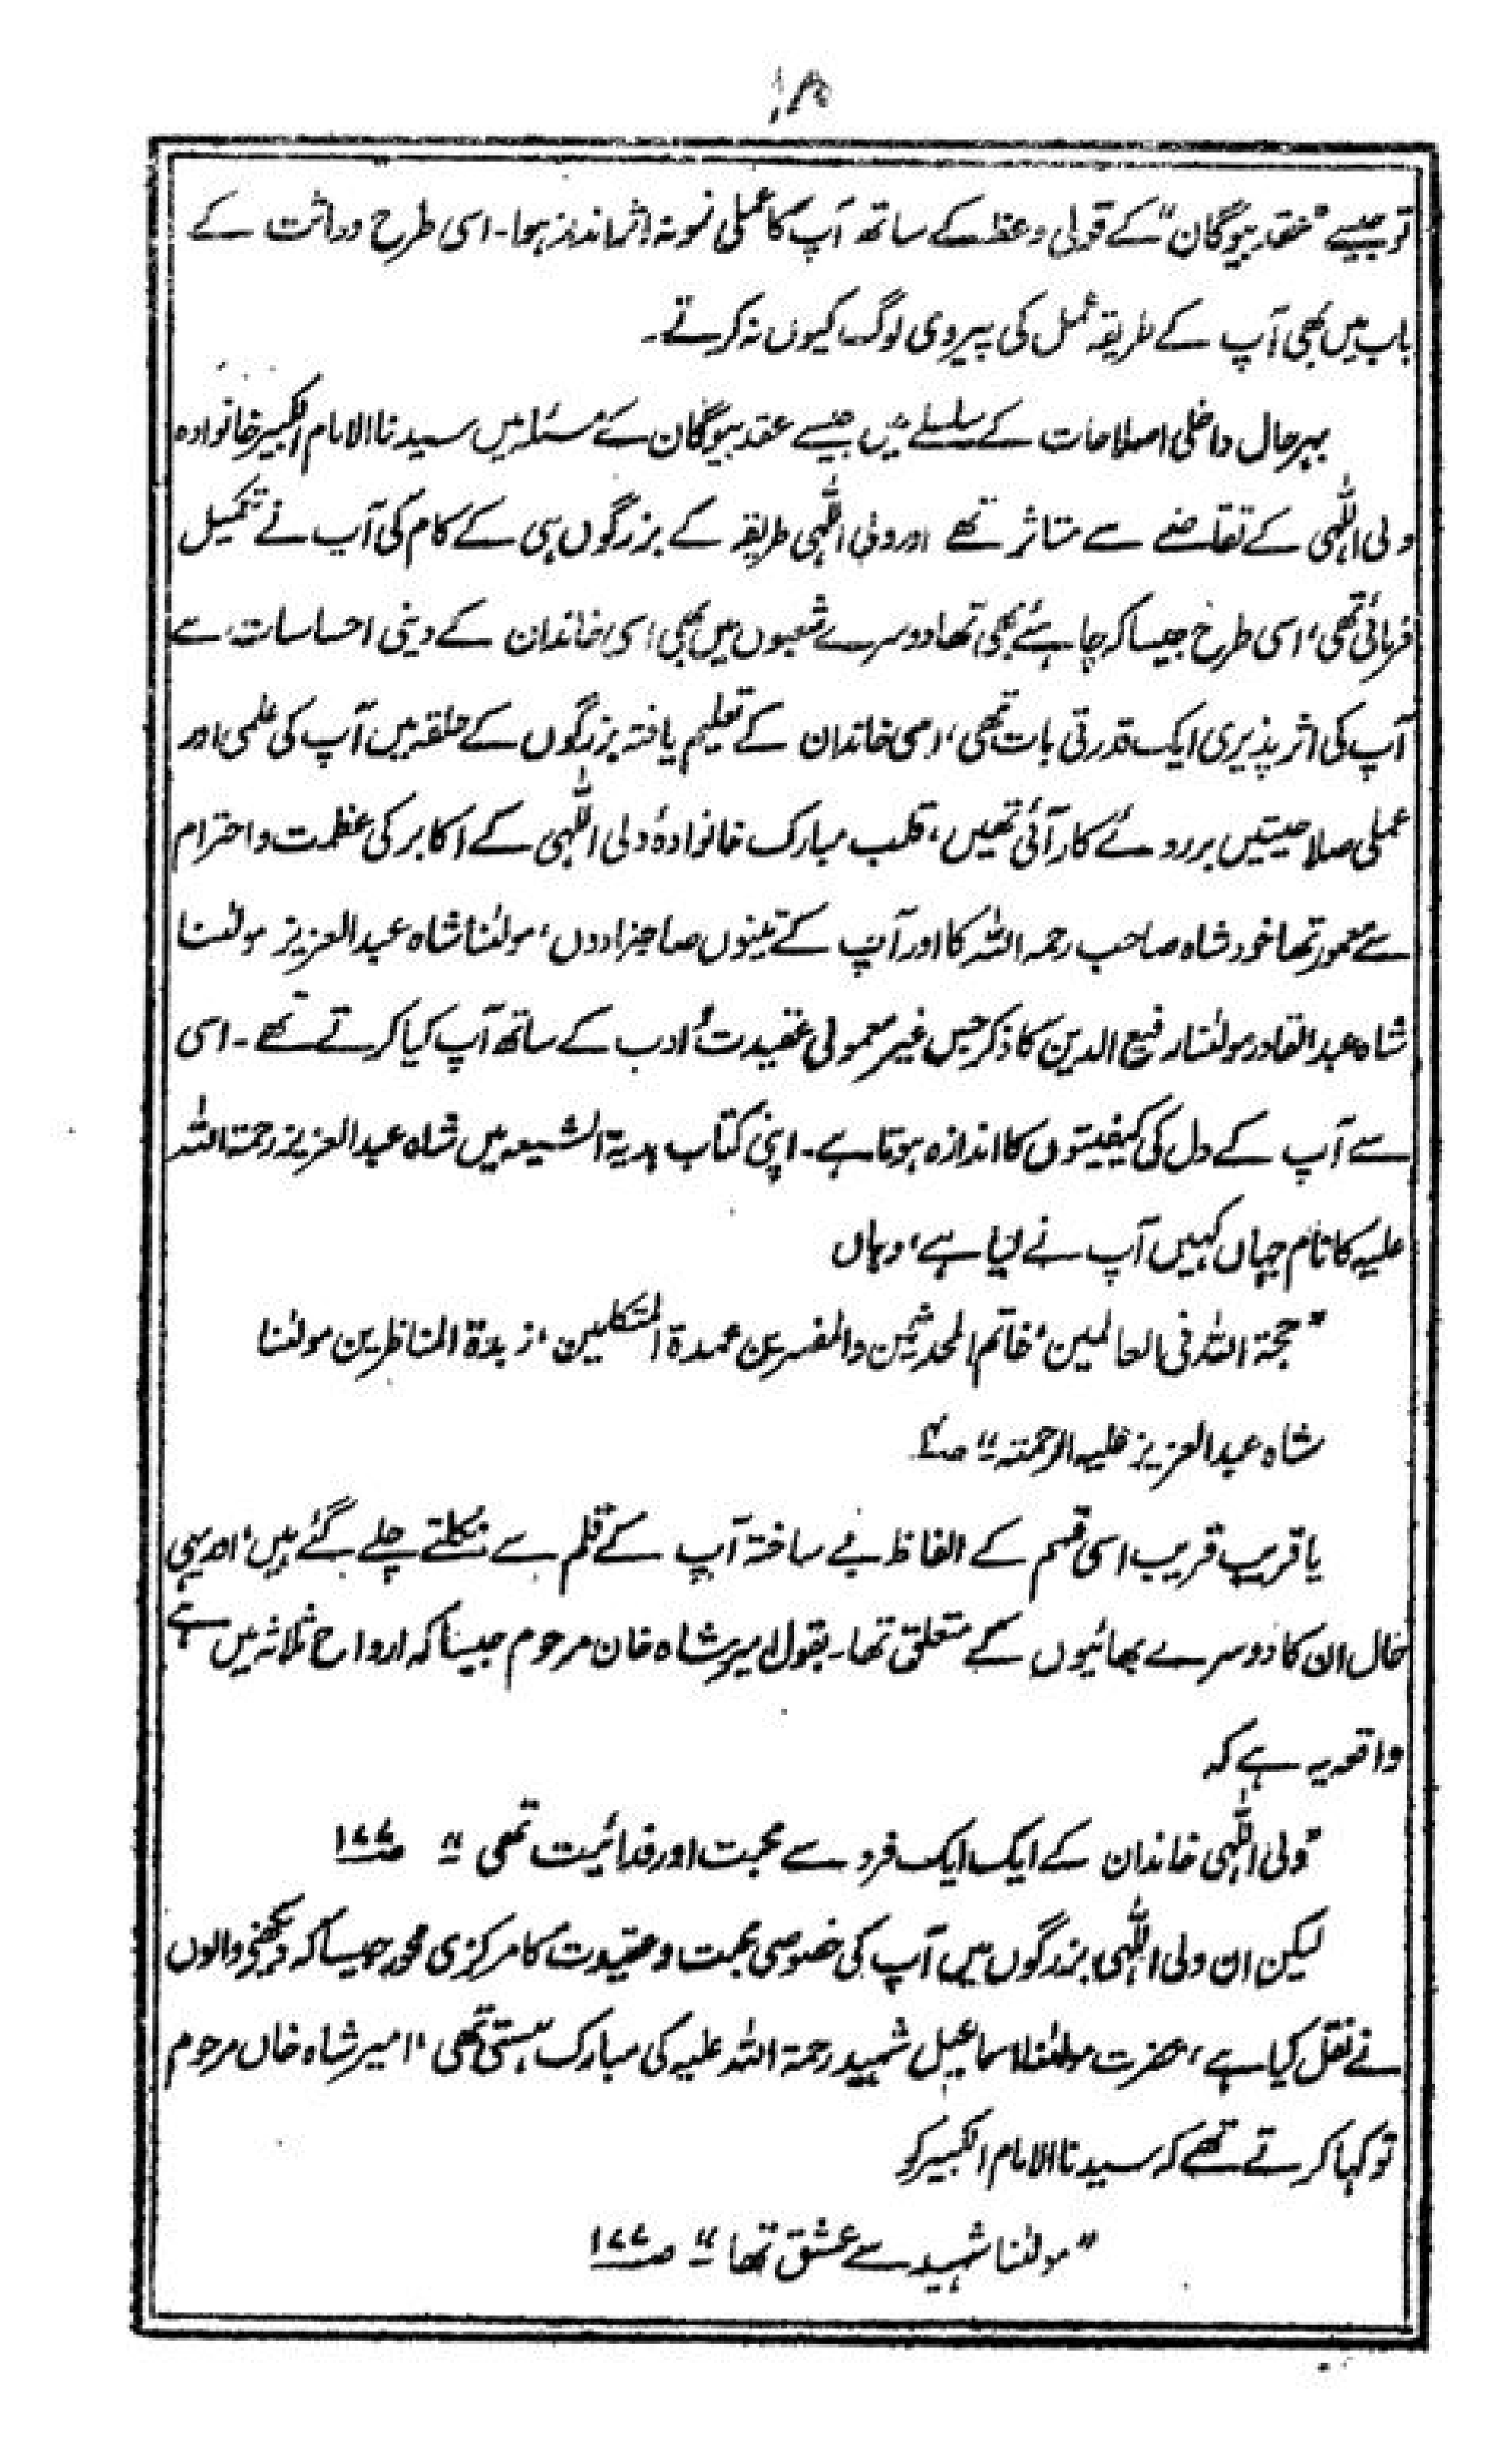 تو جیسے "عقد بیوگان" کے قولی وعظ کے ساتھ آپ کا عملی نمونہ اثر انداز ہوا۔ اسی طرح وراثت کے
باب میں بھی آپ کے طریقہ عمل کی پیروی لوگ کیوں نہ کرتے۔
بہرحال داخلی اصلاحات کے سلسلے میں جیسے عقد بیوگان کے مسئلہ میں سیدنا الامام الکبیر خانوادہ
ولی اللّٰہی کے تقاضے سے متاثر تھے اور ولی اللّٰہی طریقہ کے بزرگوں ہی کے کام کی آپ نے تکمیل
فرمائی تھی، اسی طرح جیسا کہ چاہئے بھی تھا دوسرے شعبوں میں بھی اسی خاندان کے دینی احساسات سے
آپ کی اثر پذیری ایک قدرتی بات تھی، اسی خاندان کے تعلیم یافتہ بزرگوں کے حلقہ میں آپ کی علمی اور
عملی صلاحیتیں بروئے کار آئی تھیں، قلب مبارک خانوادۂ ولی اللّٰہی کے اکابر کی عظمت و احترام
سے معمور تھا خود شاہ صاحب رحمہ اللہ کا اور آپ کے تینوں صاحبزادوں، مولٰنا شاہ عبدالعزیز مولٰنا
شاہ عبدالقادر مولٰنا رفیع الدین کا ذکر جس غیر معمولی عقیدت و ادب کے ساتھ آپ کیا کرتے تھے۔ اسی
سے آپ کے دل کی کیفیتوں کا اندازہ ہوتا ہے۔ اپنی کتاب ہدیۃ الشیعہ میں شاہ عبدالعزیز رحمۃ اللہ
علیہ کا نام جہاں کہیں آپ نے لیا ہے، وہاں
"حجۃ اللہ فی العالمین، خاتم المحدثین والمفسرین عمدۃ المتکلمین، زبدۃ المناظرین مولٰنا
شاہ عبدالعزیز علیہ الرحمتہ"
یا قریب قریب اسی قسم کے الفاظ بے ساختہ آپ کے قلم سے نکلتے چلے گئے ہیں، اور یہی
حال ان کا دوسرے بھائیوں کے متعلق تھا۔ بقول امیر شاہ خان مرحوم جیسا کہ ارواح ثلاثہ میں ہے
واقعہ یہ ہے کہ
"ولی اللّٰہی خاندان کے ایک ایک فرد سے محبت اور فدائیت تھی" ص۱۷۷
لیکن ان ولی اللّٰہی بزرگوں میں آپ کی خصوصی محبت و عقیدت کا مرکزی محور جیسا کہ دیکھنے والوں
نے نقل کیا ہے، حضرت مولٰنا اسماعیل شہید رحمۃ اللہ علیہ کی مبارک ہستی تھی، امیر شاہ خاں مرحوم
تو کہا کرتے تھے کہ سیدنا الامام الکبیر کو
"مولٰنا شہید سے عشق تھا" ص۱۷۷